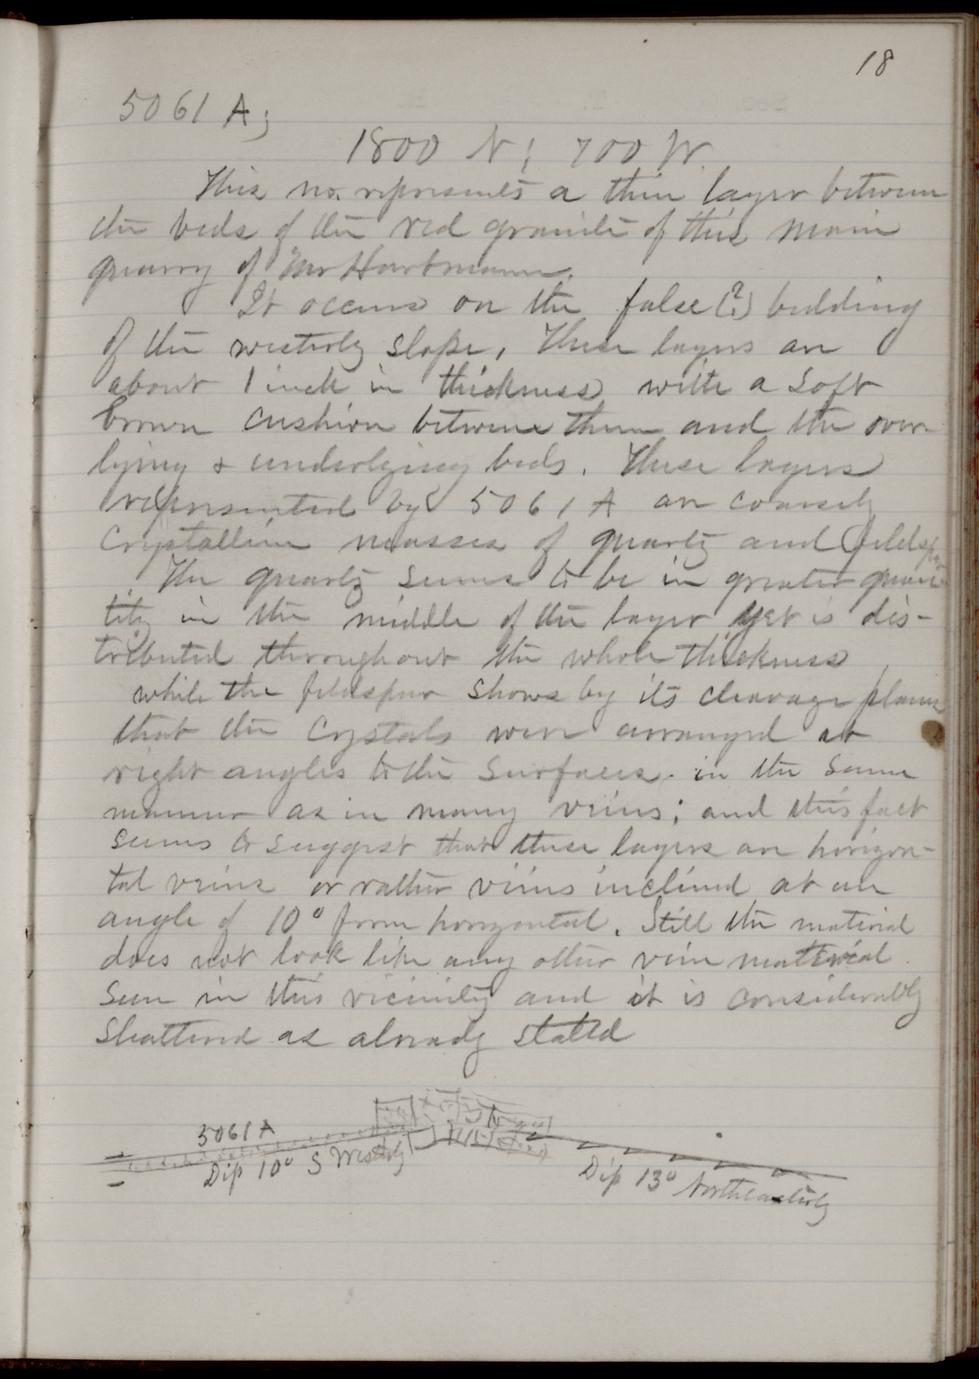 18
5061 A;
1800 N; 700 W.
This no. represents a thin layer between
the beds of the red granite of this main
quarry of Mr Hartmann.
It occurs on the false (?) bedding
of the westerly slope. These layers are
about 1 inch in thickness with a soft
brown cushion between them and the over-
lying & underlying beds. These layers
represented by 5061 A are coarsely
crystalline masses of quartz and feldspar
The quartz seems to be in greater quan-
tity in the middle of the layer yet is dis-
tributed throughout the whole thickness,
while the feldspar shows by its cleavage planes
that the crystals were arranged at
right angles to the surfaces in the same
manner as in many veins; and this fact
seems to suggest that these layers are horizon-
tal veins or rather veins inclined at an
angle of 10° from horizontal. Still the material
does not look like any other vein material
seen in this vicinity and it is considerably
shattered as already stated
5061 A
Dip 10° S Westerly
Dip 13° Northeasterly